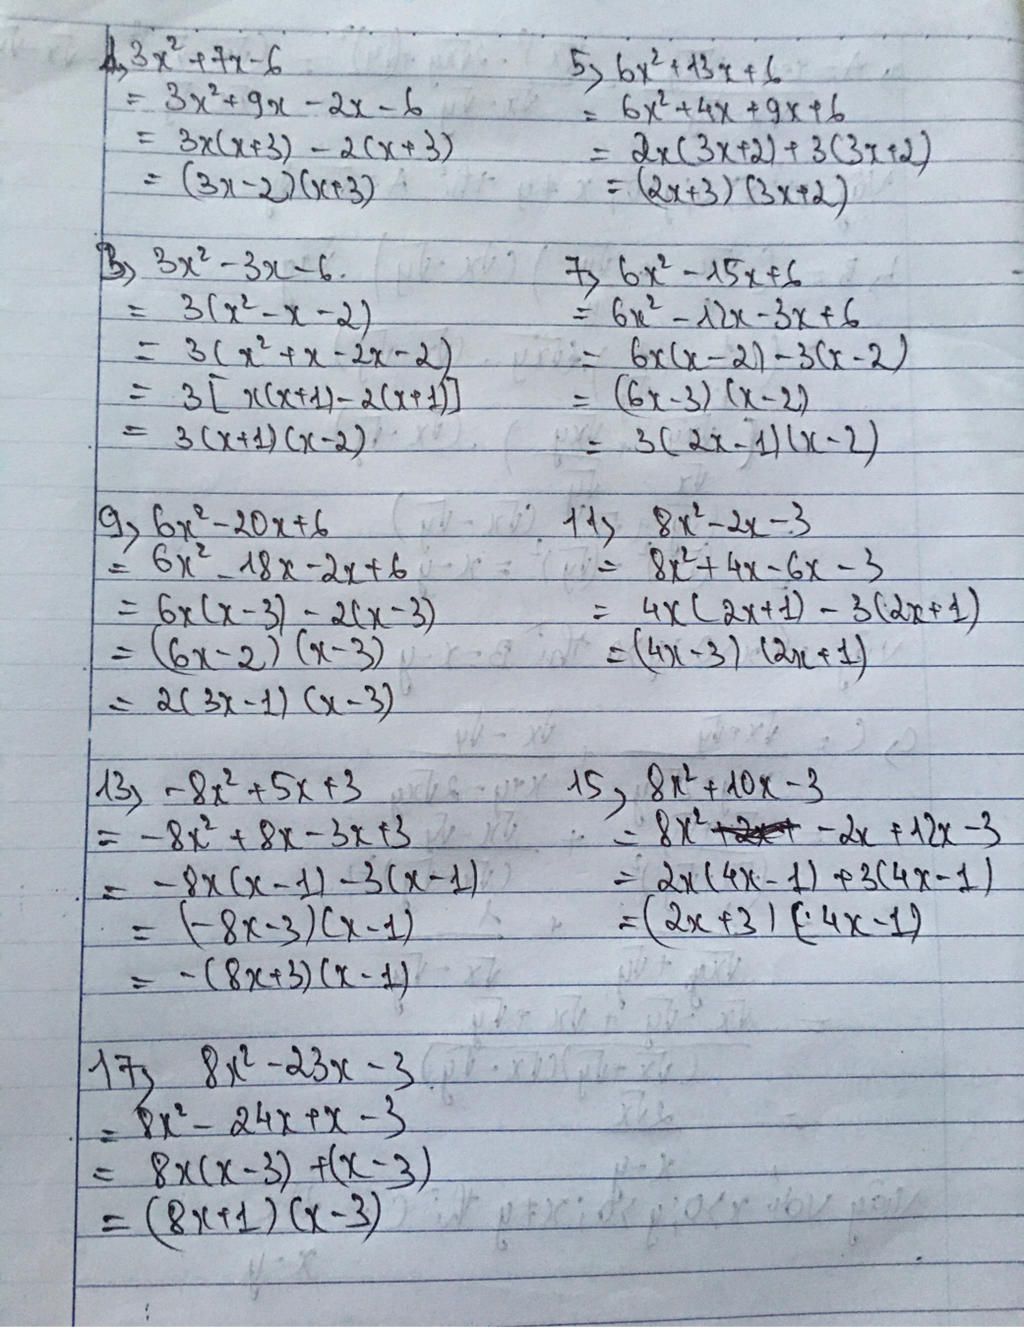 1, 3x² + 7x - 6
= 3x² + 9x - 2x - 6
= 3x(x+3) - 2(x+3)
= (3x-2)(x+3)
5, 6x² + 13x + 6
= 6x² + 4x + 9x + 6
= 2x(3x+2) + 3(3x+2)
= (2x+3)(3x+2)
3, 3x² - 3x - 6.
= 3(x² - x - 2)
= 3(x² + x - 2x - 2)
= 3[x(x+1) - 2(x+1)]
= 3(x+1)(x-2)
7, 6x² - 15x + 6
= 6x² - 12x - 3x + 6
= 6x(x-2) - 3(x-2)
= (6x-3)(x-2)
= 3(2x-1)(x-2)
9, 6x² - 20x + 6
= 6x² - 18x - 2x + 6
= 6x(x-3) - 2(x-3)
= (6x-2)(x-3)
= 2(3x-1)(x-3)
11, 8x² - 2x - 3
= 8x² + 4x - 6x - 3
= 4x(2x+1) - 3(2x+1)
= (4x-3)(2x+1)
13, -8x² + 5x + 3
= -8x² + 8x - 3x + 3
= -8x(x-1) - 3(x-1)
= (-8x-3)(x-1)
= -(8x+3)(x-1)
15, 8x² + 10x - 3
= 8x² - 2x + 12x - 3
= 2x(4x-1) + 3(4x-1)
= (2x+3)(4x-1)
17, 8x² - 23x - 3
= 8x² - 24x + x - 3
= 8x(x-3) + (x-3)
= (8x+1)(x-3)